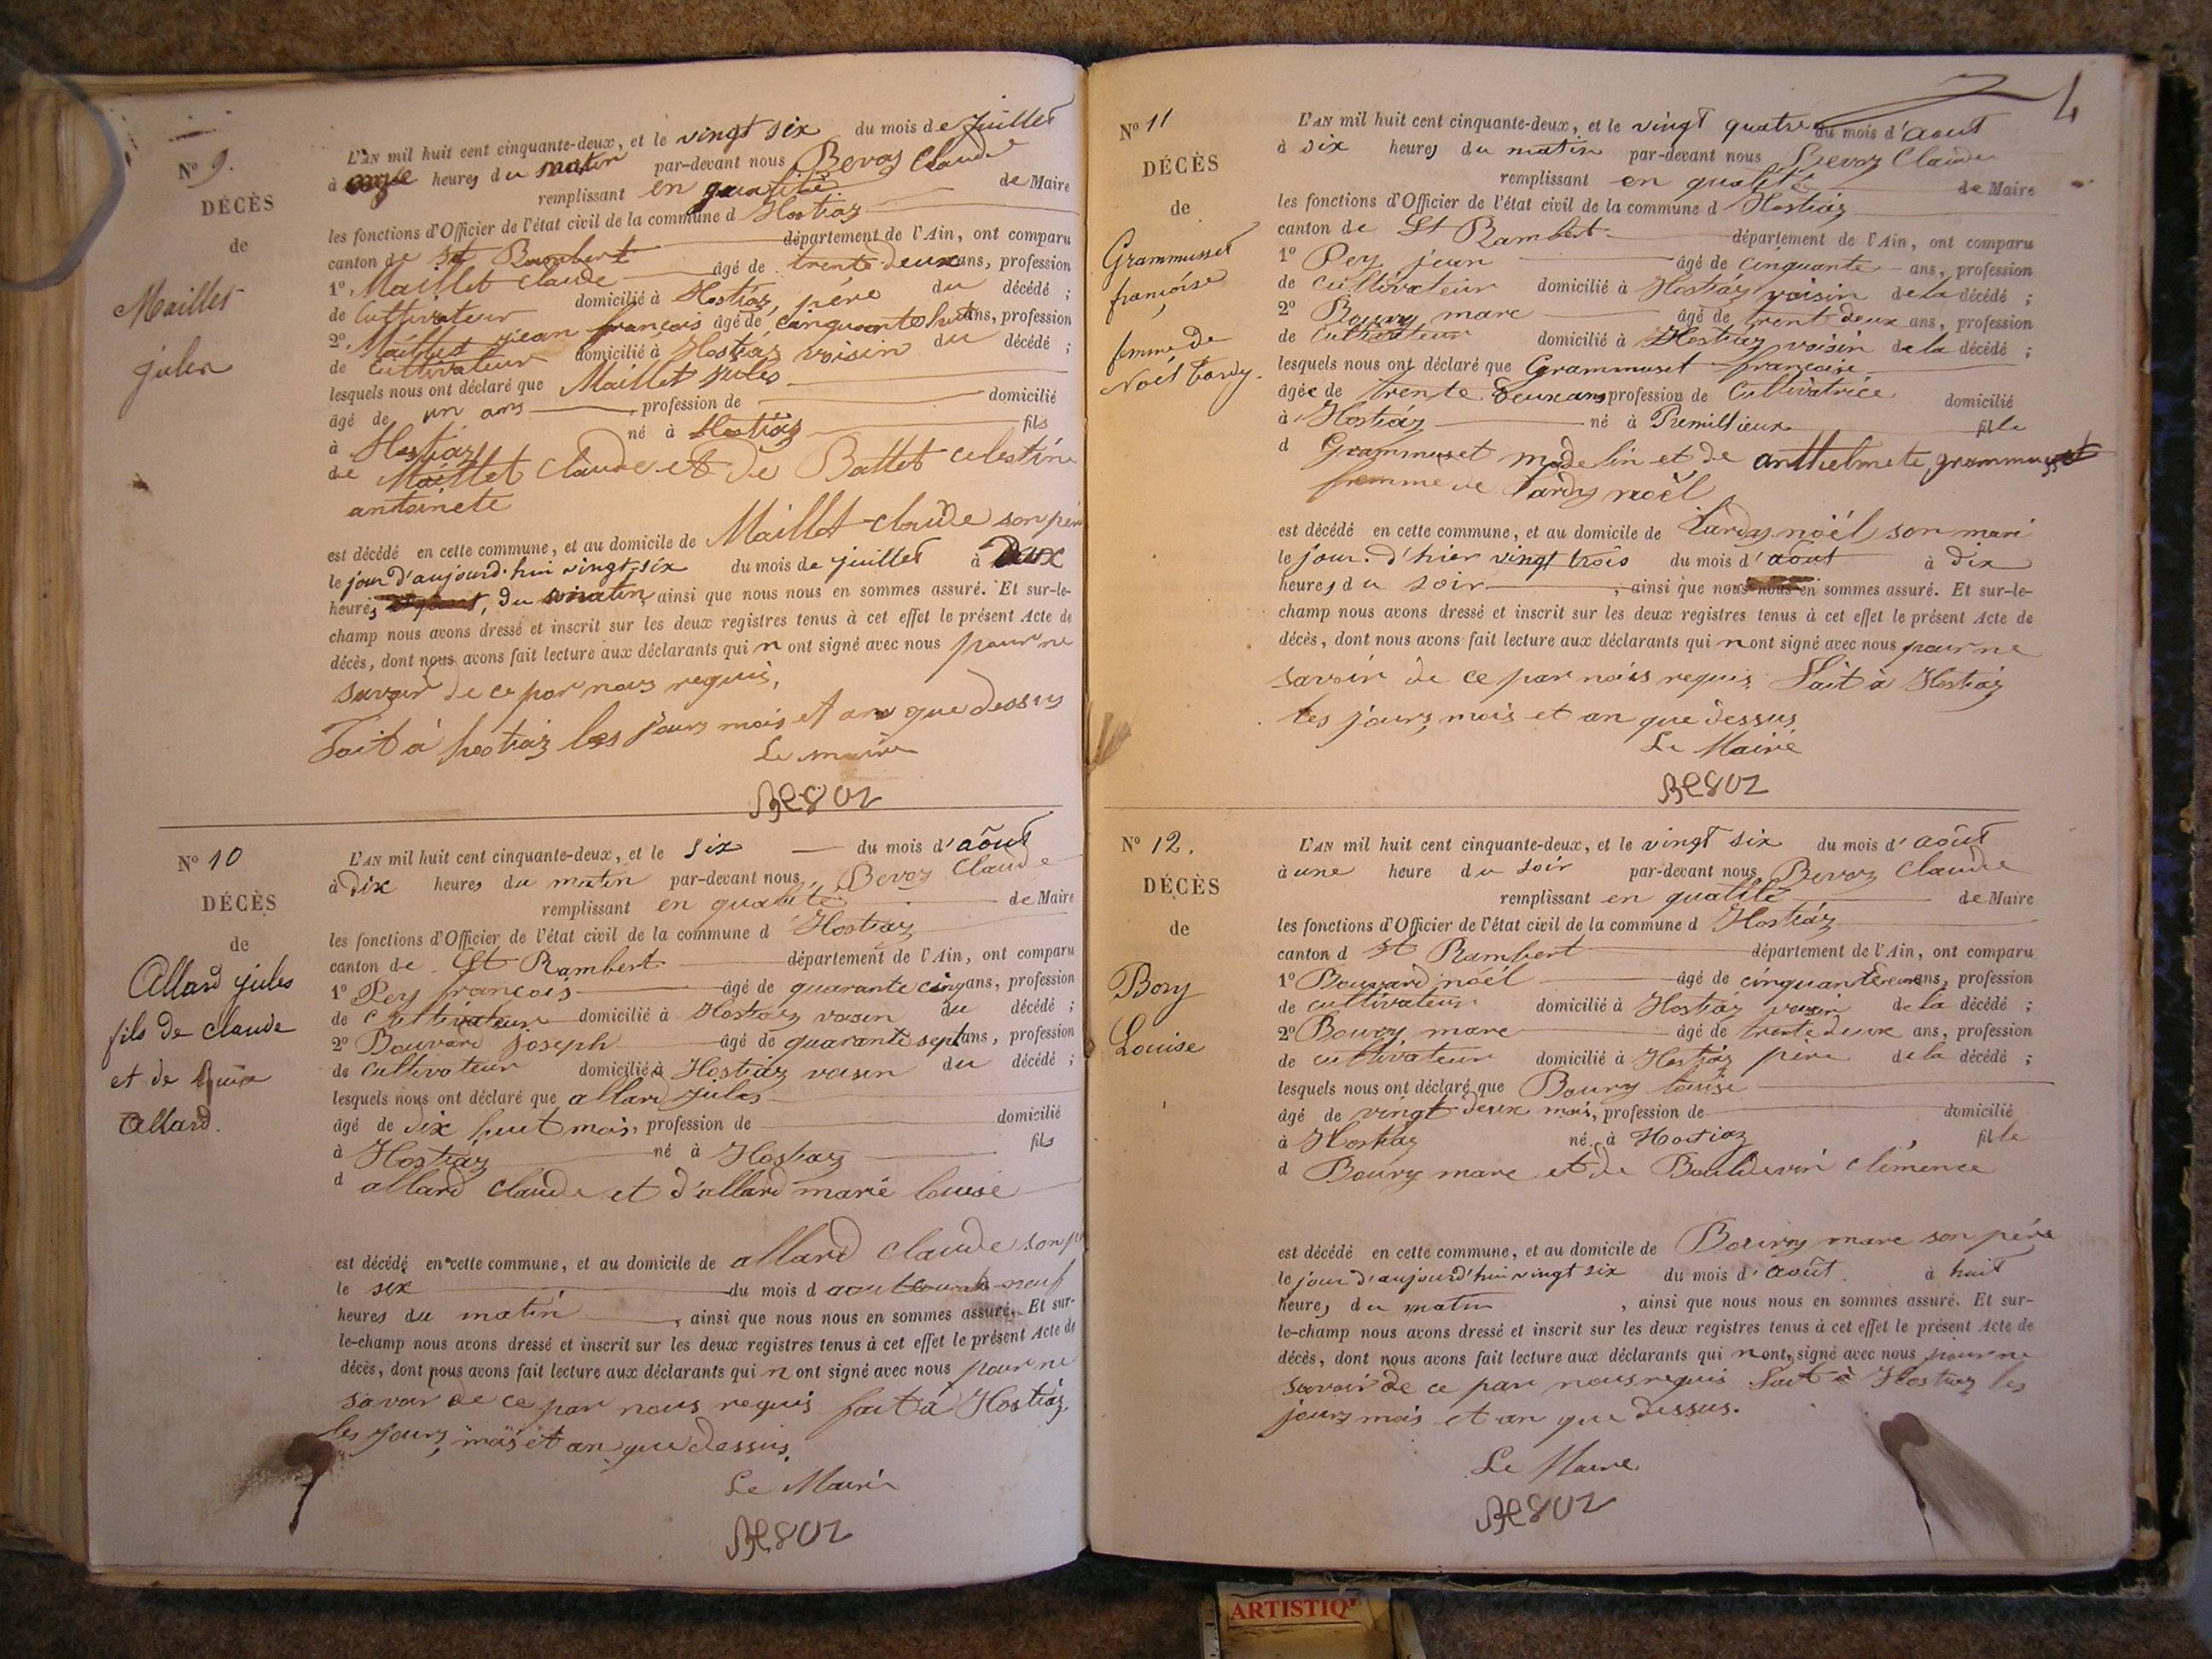 Nº 9.
DÉCÈS
de
Maillet
jules
L'AN mil huit cent cinquante-deux, et le vingt six du mois de juillet
à onze heures du matin par-devant nous Bevoz Claude
remplissant en qualité de Maire
les fonctions d'Officier de l'état civil de la commune d Hostiaz
canton de St Rambert département de l'Ain, ont comparu
1º Maillet Claude âgé de trente deux ans, profession
de Cultivateur domicilié à Hostiaz, père du décédé ;
2º Maillet jean françois âgé de cinquante huit ans, profession
de Cultivateur domicilié à Hostiaz voisin du décédé ;
lesquels nous ont déclaré que Maillet Jules
âgé de un ans profession de domicilié
à Hostiaz né à Hostiaz fils
de Maillet Claude et de Battet celestine
antoinete
est décédé en cette commune, et au domicile de Maillet claude son père
le jour d'aujourd'hui vingt six du mois de juillet à deux
heures du matin, ainsi que nous nous en sommes assuré. Et sur-le-
champ nous avons dressé et inscrit sur les deux registres tenus à cet effet le présent Acte de
décès, dont nous avons fait lecture aux déclarants qui n ont signé avec nous pour ne
savoir de ce par nous requis,
Fait à hostiaz les jours mois et an que dessus
Le maire
Bevoz
Nº 10
DÉCÈS
de
Allard jules
fils de claude
et de
Allard.
L'AN mil huit cent cinquante-deux, et le six du mois d'août
à Dix heures du matin par-devant nous Bevoz Claude
remplissant en qualité de Maire
les fonctions d'Officier de l'état civil de la commune d Hostiaz
canton de St Rambert département de l'Ain, ont comparu
1º Pey françois âgé de quarante cinq ans, profession
de Cultivateur domicilié à Hostiaz voisin du décédé ;
2º Bouvard joseph âgé de quarante sept ans, profession
de Cultivateur domicilié à Hostiaz voisin du décédé ;
lesquels nous ont déclaré que allard jules
âgé de dix huit mois, profession de domicilié
à Hostiaz né à Hostiaz fils
d allard claude et d'allard marie louise
est décédé en cette commune, et au domicile de allard claude son
le six du mois d aout courant à neuf
heures du matin, ainsi que nous nous en sommes assuré. Et sur-
le-champ nous avons dressé et inscrit sur les deux registres tenus à cet effet le présent Acte de
décès, dont nous avons fait lecture aux déclarants qui n ont signé avec nous pour ne
savoir de ce par nous requis fait à Hostiaz
les jours, mois et an que dessus.
Le Maire
Bevoz
4
Nº 11
DÉCÈS
de
Grammusset
françoise
femme de
Noël tardy.
L'AN mil huit cent cinquante-deux, et le vingt quatre du mois d'aout
à six heures du matin par-devant nous Bevoz Claude
remplissant en qualité de Maire
les fonctions d'Officier de l'état civil de la commune d Hostiaz
canton de St Rambert département de l'Ain, ont comparu
1º Pey jean âgé de cinquante ans, profession
de cultivateur domicilié à Hostiaz voisin de la décédé ;
2º Boury marc âgé de trente deux ans, profession
de Cultivateur domicilié à Hostiaz voisin de la décédé ;
lesquels nous ont déclaré que Grammuset françoise
âgée de trente deux ans profession de Cultivatrice domicilié
à Hostiaz né à Premillieux fille
d Grammuset modelin et de anthelmete, grammusset
femme de tardy noël
est décédé en cette commune, et au domicile de tardy noël son mari
le jour d'hier vingt trois du mois d'août à dix
heures du soir, ainsi que nous nous en sommes assuré. Et sur-le-
champ nous avons dressé et inscrit sur les deux registres tenus à cet effet le présent Acte de
décès, dont nous avons fait lecture aux déclarants qui n ont signé avec nous pour ne
savoir de ce par nous requis. Fait à Hostiaz
les jours, mois et an que dessus
Le Maire
Bevoz
Nº 12.
DÉCÈS
de
Bory
Louise
L'AN mil huit cent cinquante-deux, et le vingt six du mois d'août
à une heure du soir par-devant nous Bevoz Claude
remplissant en qualité de Maire
les fonctions d'Officier de l'état civil de la commune d Hostiaz
canton d St Rambert département de l'Ain, ont comparu
1º Bouvard noël âgé de cinquante deux ans, profession
de cultivateur domicilié à Hostiaz voisin de la décédé ;
2º Boury marc âgé de trente deux ans, profession
de cultivateur domicilié à Hostiaz père de la décédé ;
lesquels nous ont déclaré que Boury louise
âgé de vingt deux mois, profession de domicilié
à Hostiaz né à Hostiaz fille
d Boury marc et de Bouldevin clémence
est décédé en cette commune, et au domicile de Boury marc son père
le jour d'aujourd'hui vingt six du mois d'août à huit
heures du matin, ainsi que nous nous en sommes assuré. Et sur-
le-champ nous avons dressé et inscrit sur les deux registres tenus à cet effet le présent Acte de
décès, dont nous avons fait lecture aux déclarants qui n ont signé avec nous pour ne
savoir de ce par nous requis Fait à Hostiaz les
jours mois et an que dessus.
Le Maire.
Bevoz
ARTISTIQ